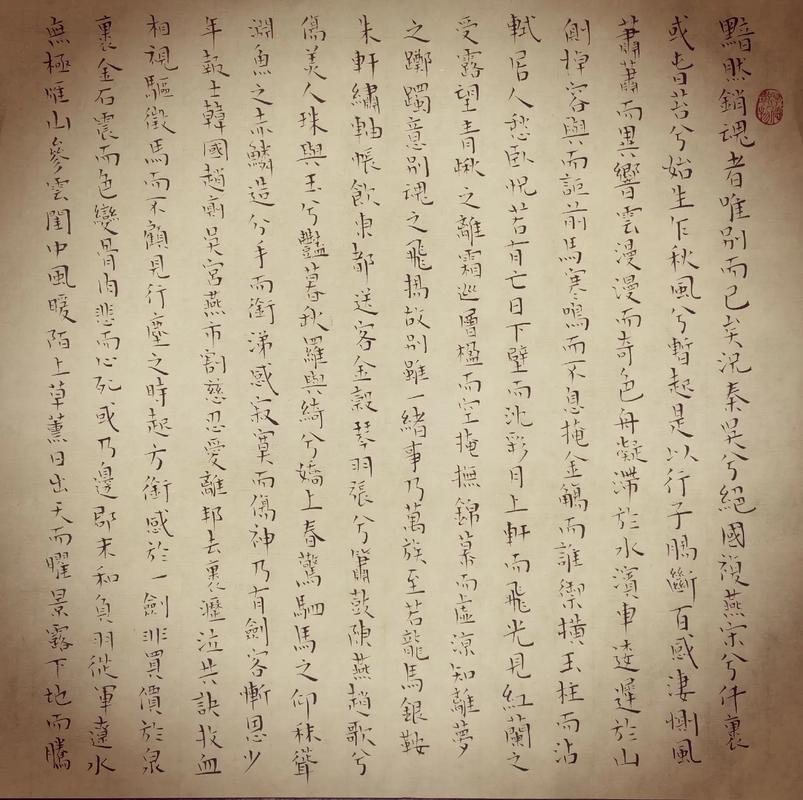 黯然銷魂者唯別而已矣況秦吳兮絕國複燕宋兮仟裏
或春苔兮始生乍秋風兮暫起是以行子腸斷百感凄惻風
蕭蕭而異響雲漫漫而奇色舟凝滯於水濱車逶遲於山
側棹容與而詎前馬寒鳴而不息掩金觴而誰禦橫玉柱而沾
軾居人愁臥怳若有亡日下壁而沈彩月上軒而飛光見紅蘭之
受露望青楸之離霜巡層楹而空掩撫錦幕而虛涼知離夢
之躑躅意別魂之飛揚故別雖一緒事乃萬族至若龍馬銀鞍
朱軒繡軸帳飲東都送客金穀琴羽張兮簫鼓陳燕趙歌兮
傷美人珠與玉兮豔暮秋羅與綺兮嬌上春驚駟馬之仰秣聳
淵魚之赤鱗造分手而銜涕感寂寞而傷神乃有劍客慚恩少
年報士韓國趙廁吳宮燕市割慈忍愛離邦去裏瀝泣共訣抆血
相視驅徵馬而不顧見行塵之時起方銜感於一劍非買價於泉
裏金石震而色變骨肉悲而心死或乃邊郡未和負羽從軍遼水
無極雁山參雲閨中風暖陌上草薰日出天而曜景露下地而騰